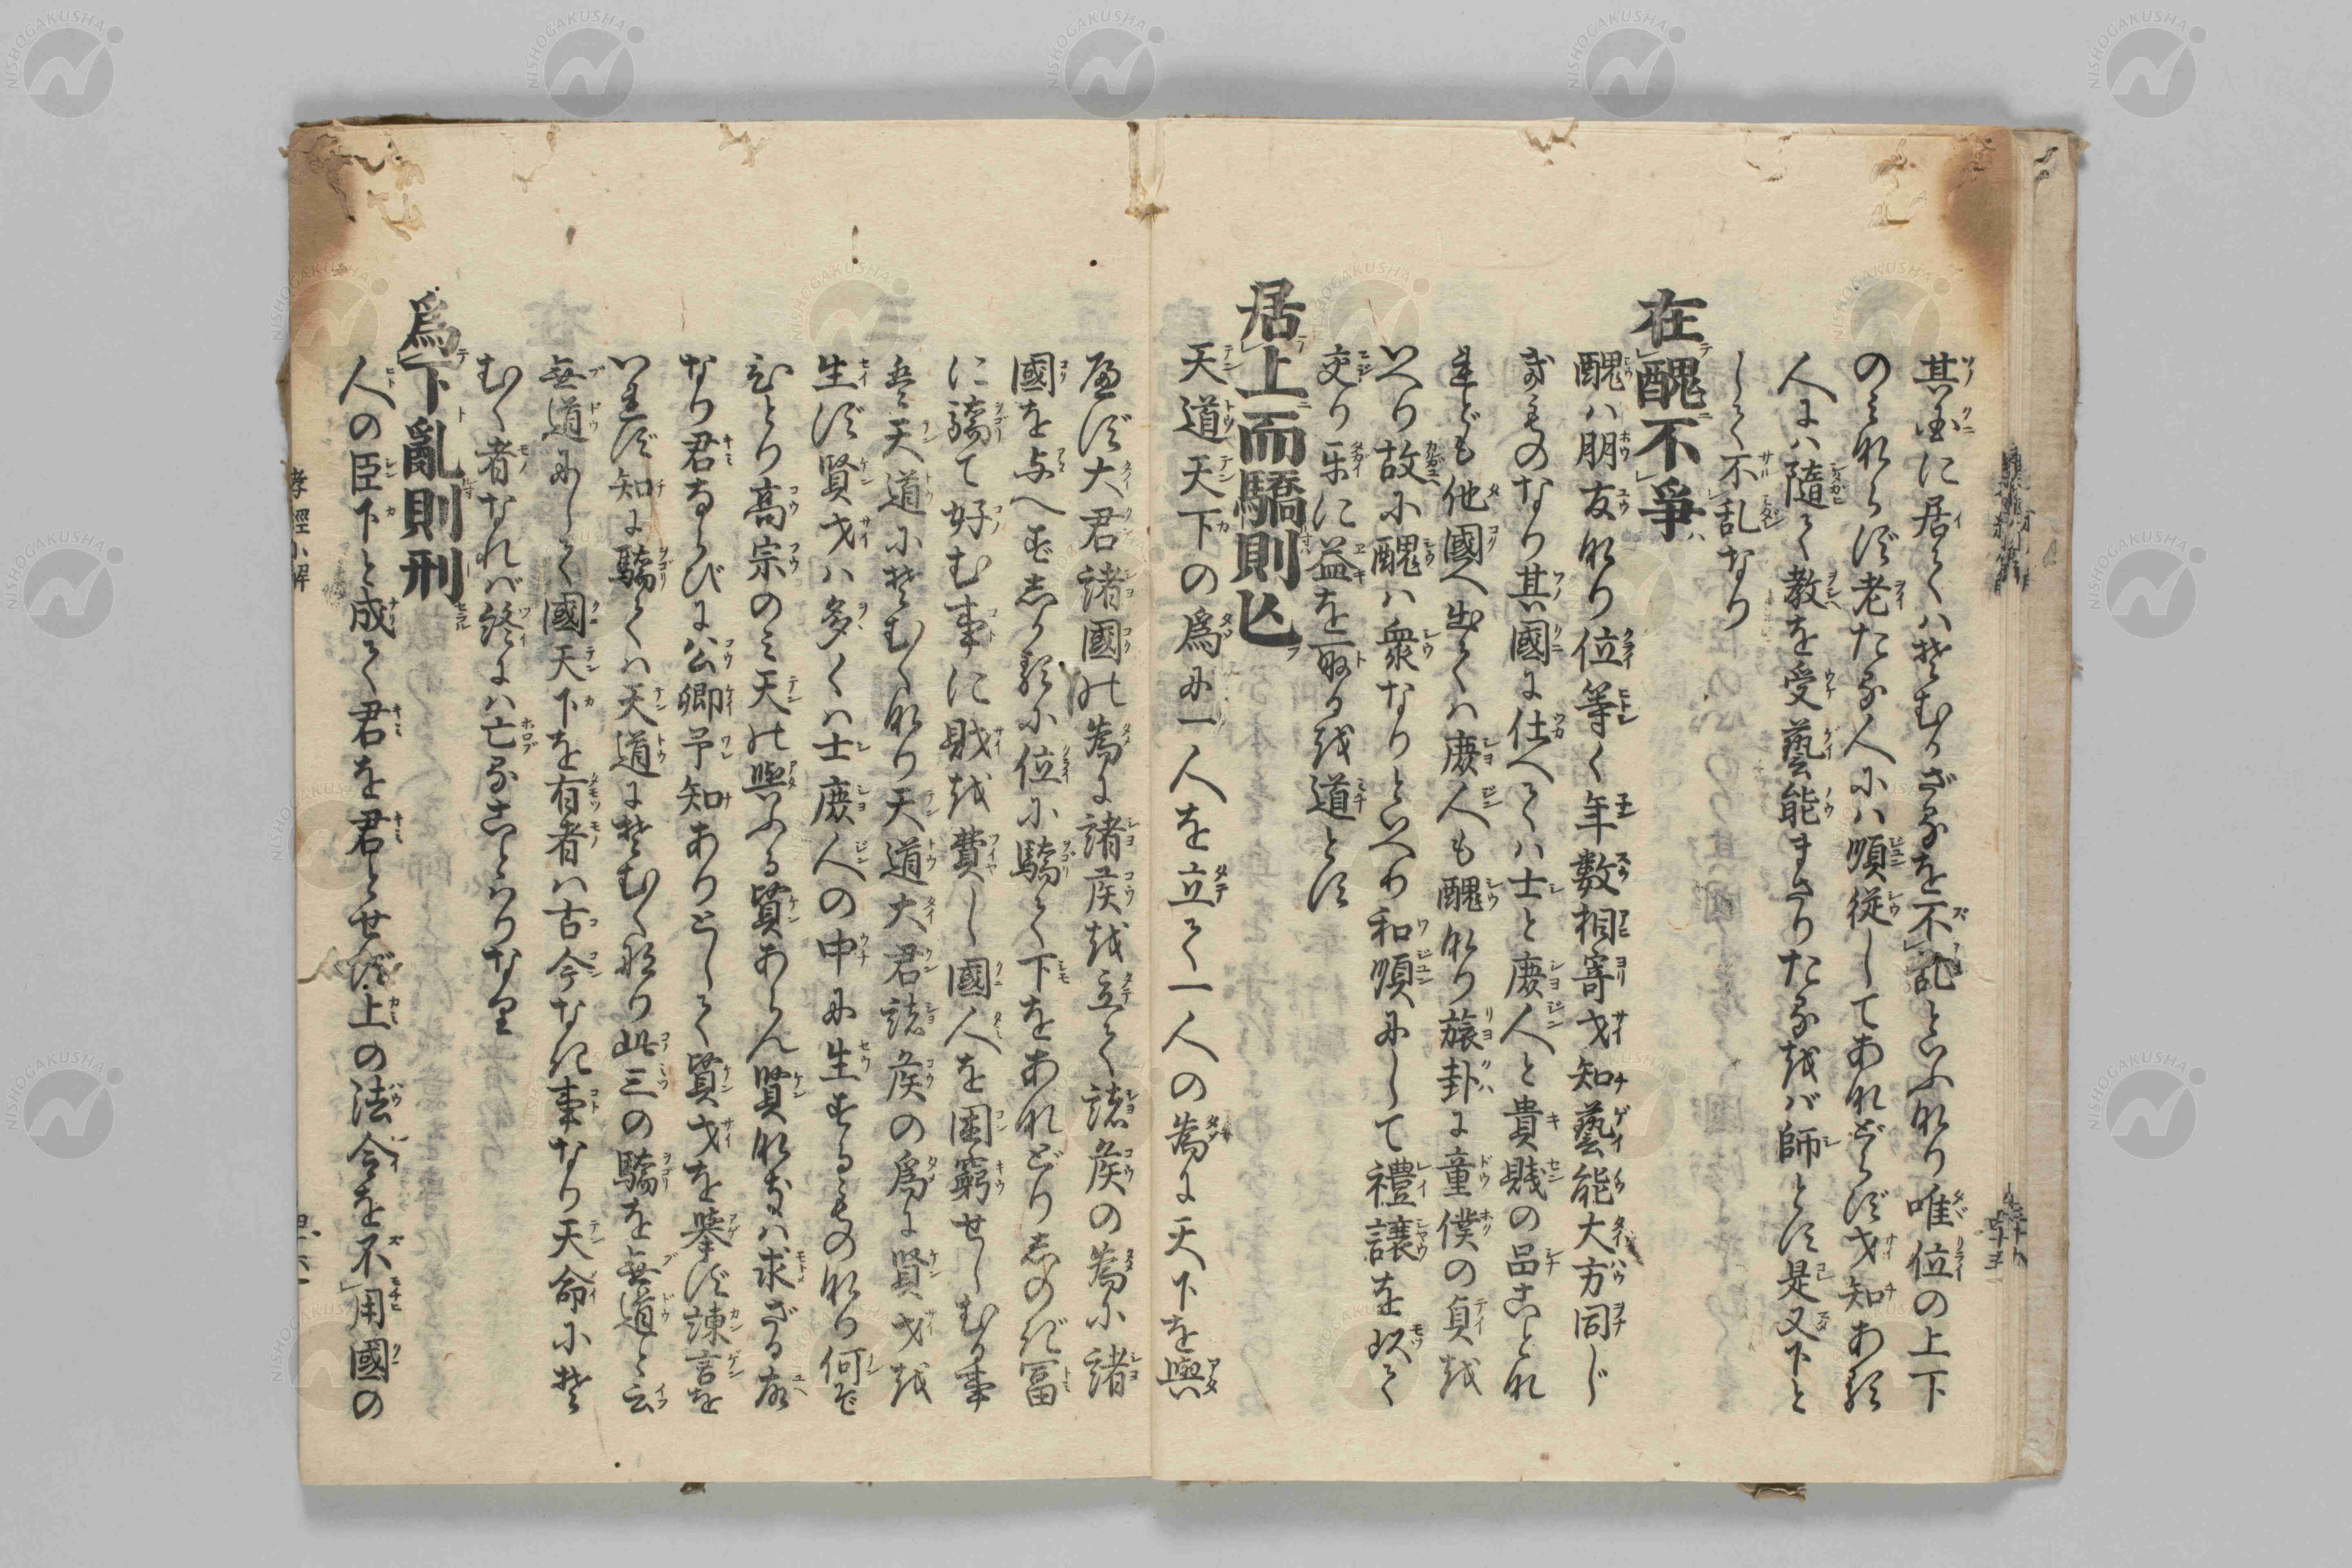 其国に居てハそむかざるを不乱といふなり唯位の上下
のミならず老たる人にハ順従してあれならず才知ある
人にハ隨て教を受藝能まさりたるをバ師とす是又下と
して不乱なり
在醜不爭
醜ハ朋友なり位等く年數相寄才知藝能大方同じ
きものなり其國に仕へてハ士と庶人と貴賎の品ことな
れども他國へ出てハ庶人も醜なり旅卦に童僕の貞を
いへり故に醜ハ衆なりといへり和順にして禮讓を以て
交り互に益を取るを道とす
居上而驕則亡
天道天下の爲に一人を立て一人の為に天下を與
へず大君諸國の為に諸侯を立て諸侯の為に諸
國を与へずしかるに位に驕て下をあなどりしのぎ冨
に驕て好む事に財を費し國人を困窮せしむる事
是天道にそむくなり天道大君諸侯の爲に賢才を
生ず賢才ハ多くハ士庶人の中に生ずるものなり何ぞ
ひとり高宗のミ天の與ふる賢あらん賢なきハ求ざる故
なり君ならびに公卿予知ありとして賢才を擧ず諫言を
いれず知に驕てハ天道にそむくなり此三の驕を無道と云
無道にして國天下を有者ハ古今なき事なり天命にそ
むく者なれバ終にハ亡ることハりなり
爲下亂則刑
人の臣下と成て君を君とせず上の法令を不用國の
孝經小解